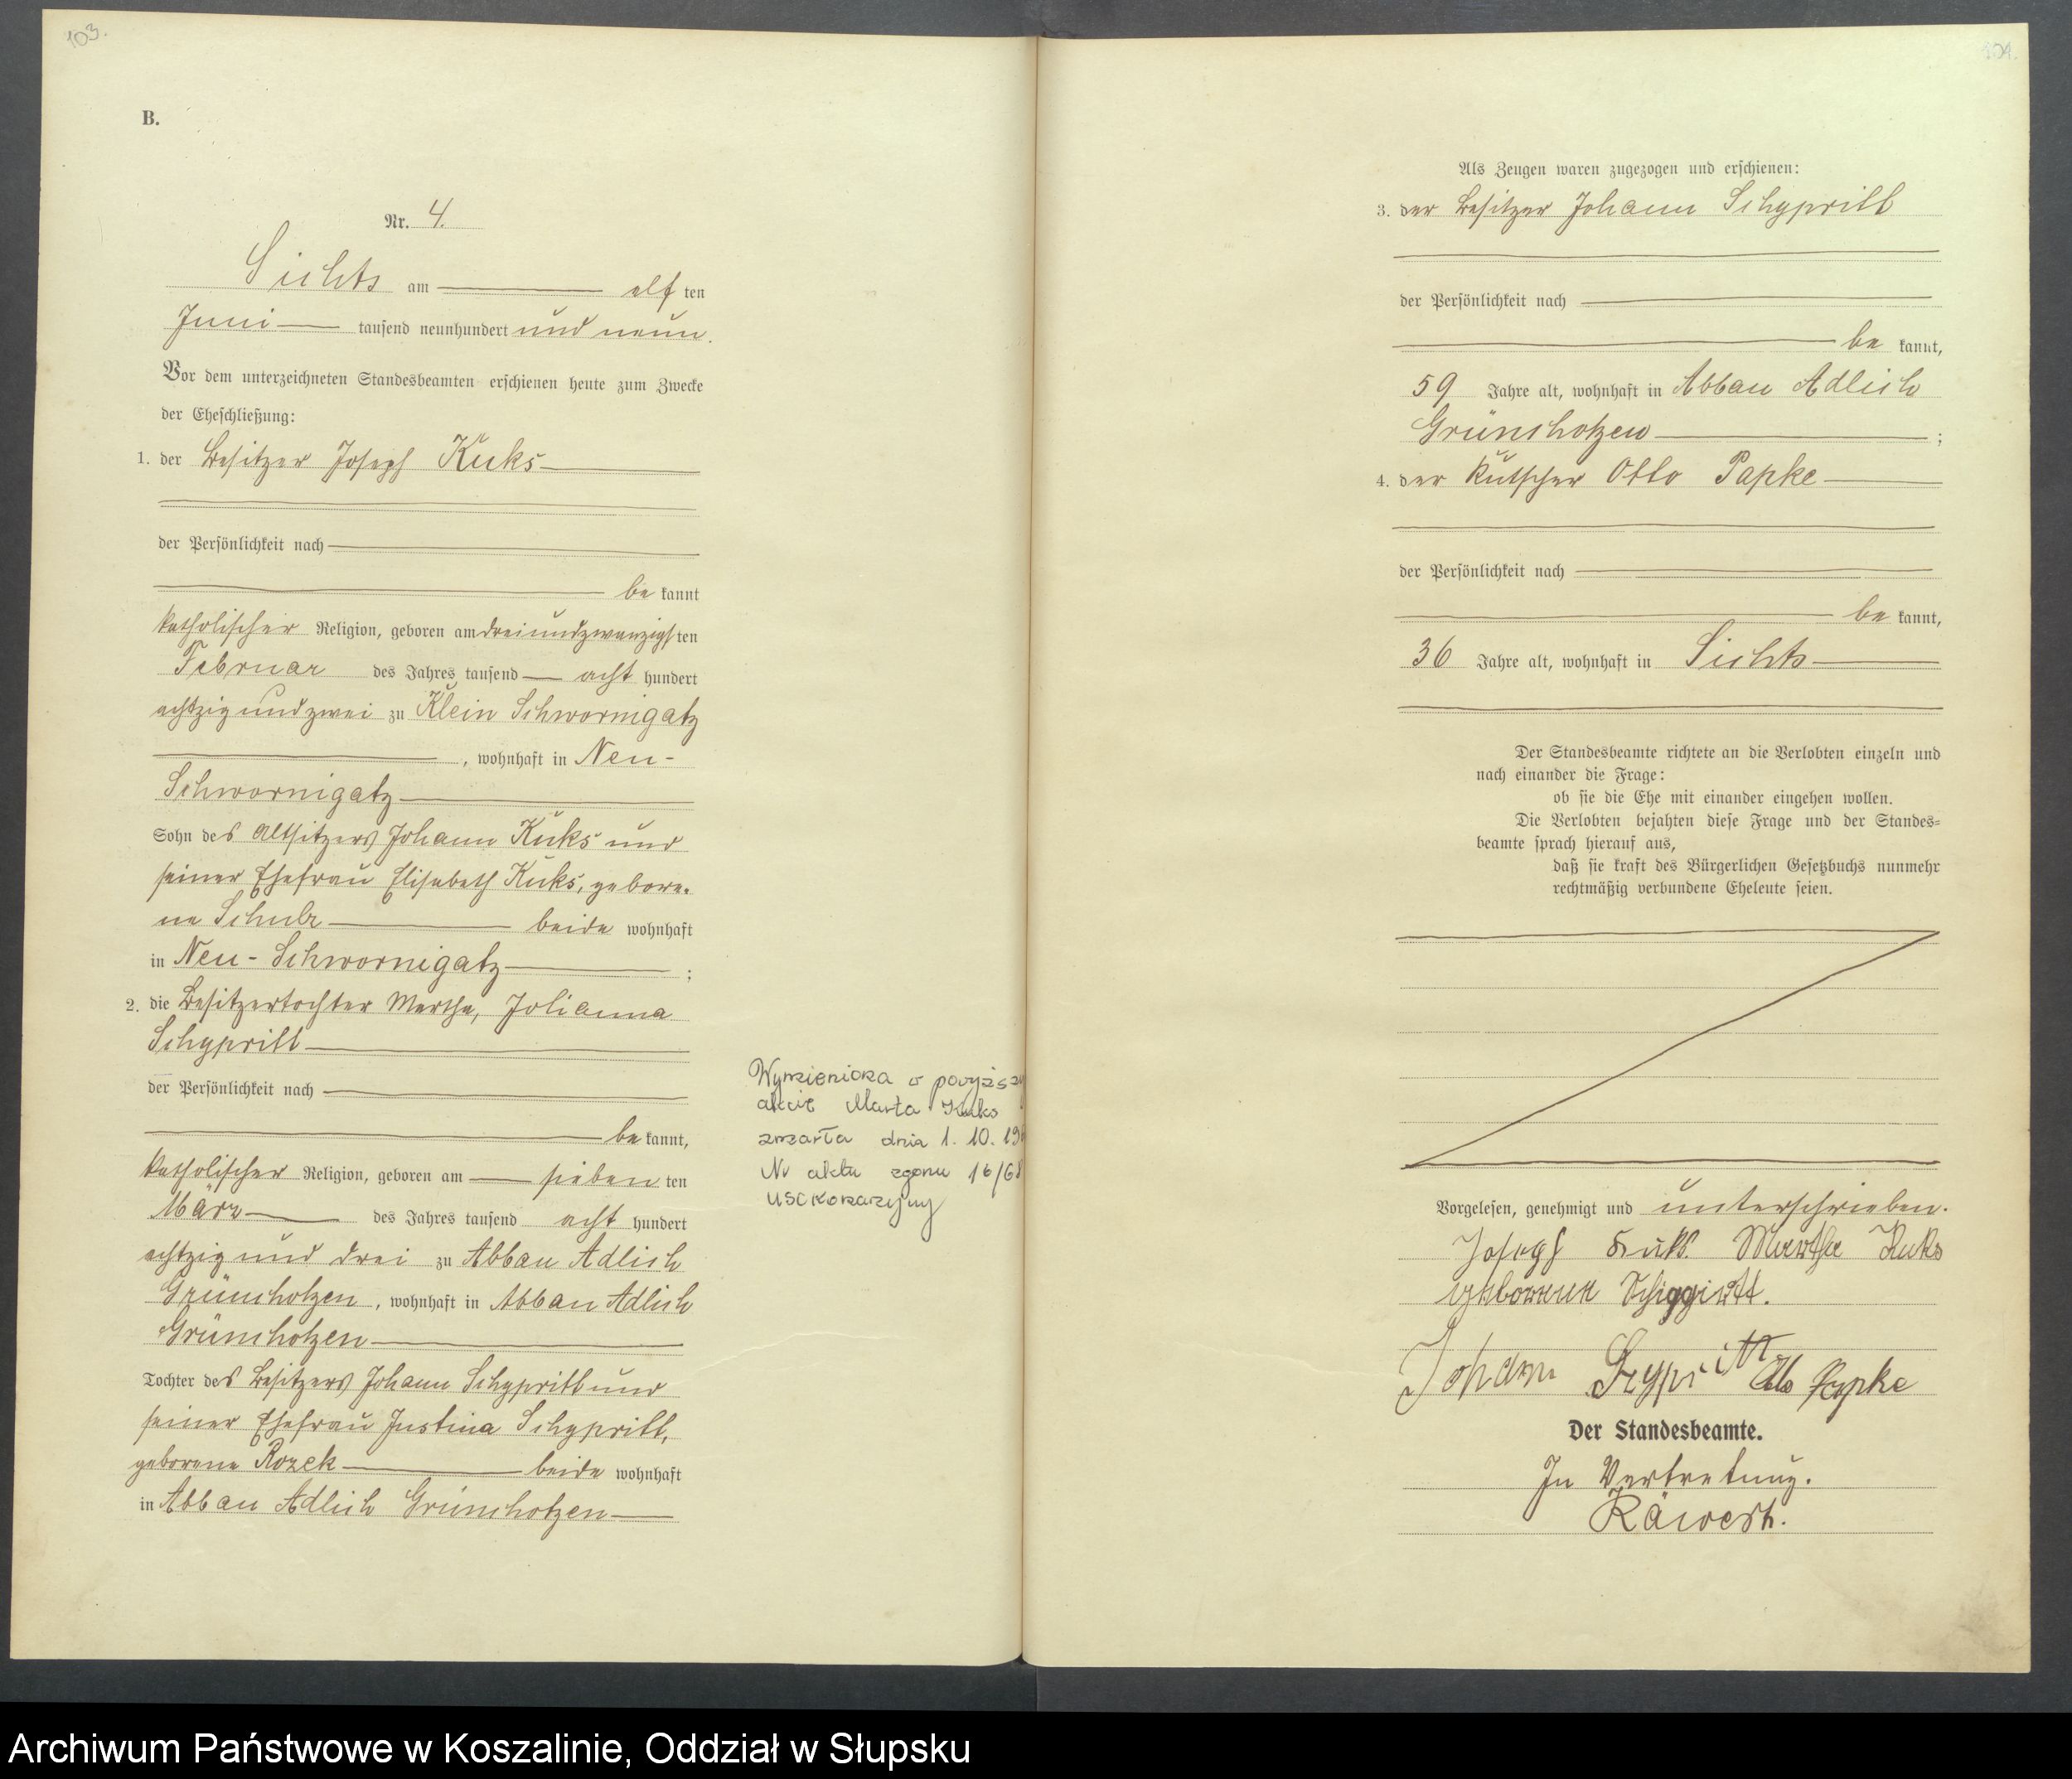 103.
B.
Nr. 4.
Sichts am elf ten
Juni tausend neunhundert und neun.
Vor dem unterzeichneten Standesbeamten erschienen heute zum Zwecke
der Eheschließung:
1. der Besitzer Joseph Kuks
der Persönlichkeit nach
be kannt
katholischer Religion, geboren am dreiundzwanzigsten
Februar des Jahres tausend acht hundert
achtzig und zwei zu Klein Schwornigatz
, wohnhaft in Neu-
Schwornigatz
Sohn des Altsitzers Johann Kuks und
seiner Ehefrau Elisabeth Kuks, gebore-
ne Schulz beide wohnhaft
in Neu-Schwornigatz ;
2. die Besitzertochter Martha, Julianna
Schypritt
der Persönlichkeit nach
be kannt,
katholischer Religion, geboren am sieben ten
März des Jahres tausend acht hundert
achtzig und drei zu Abbau Adlich
Grünchotzen, wohnhaft in Abbau Adlich
Grünchotzen
Tochter des Besitzers Johann Schypritt und
seiner Ehefrau Justina Schypritt,
geborene Rozek beide wohnhaft
in Abbau Adlich Grünchotzen
Wymieniona w
akcie Marta Kuks
zmarła dnia 1. 10.
Nr aktu zgonu 16/68
USC Konarzyny
104.
Als Zeugen waren zugezogen und erschienen:
3. der Besitzer Johann Schypritt
der Persönlichkeit nach
be kannt,
59 Jahre alt, wohnhaft in Abbau Adlich
Grünchotzen ;
4. der Kutscher Otto Papke
der Persönlichkeit nach
be kannt,
36 Jahre alt, wohnhaft in Sichts
Der Standesbeamte richtete an die Verlobten einzeln und
nach einander die Frage:
ob sie die Ehe mit einander eingehen wollen.
Die Verlobten bejahten diese Frage und der Standes=
beamte sprach hierauf aus,
daß sie kraft des Bürgerlichen Gesetzbuchs nunmehr
rechtmäßig verbundene Eheleute seien.
Vorgelesen, genehmigt und unterschrieben.
Joseph Kuks. Martha Kuks
geborene
Johann Otto Papke
Der Standesbeamte.
In Vertretung.
Räwert.
Archiwum Państwowe w Koszalinie, Oddział w Słupsku